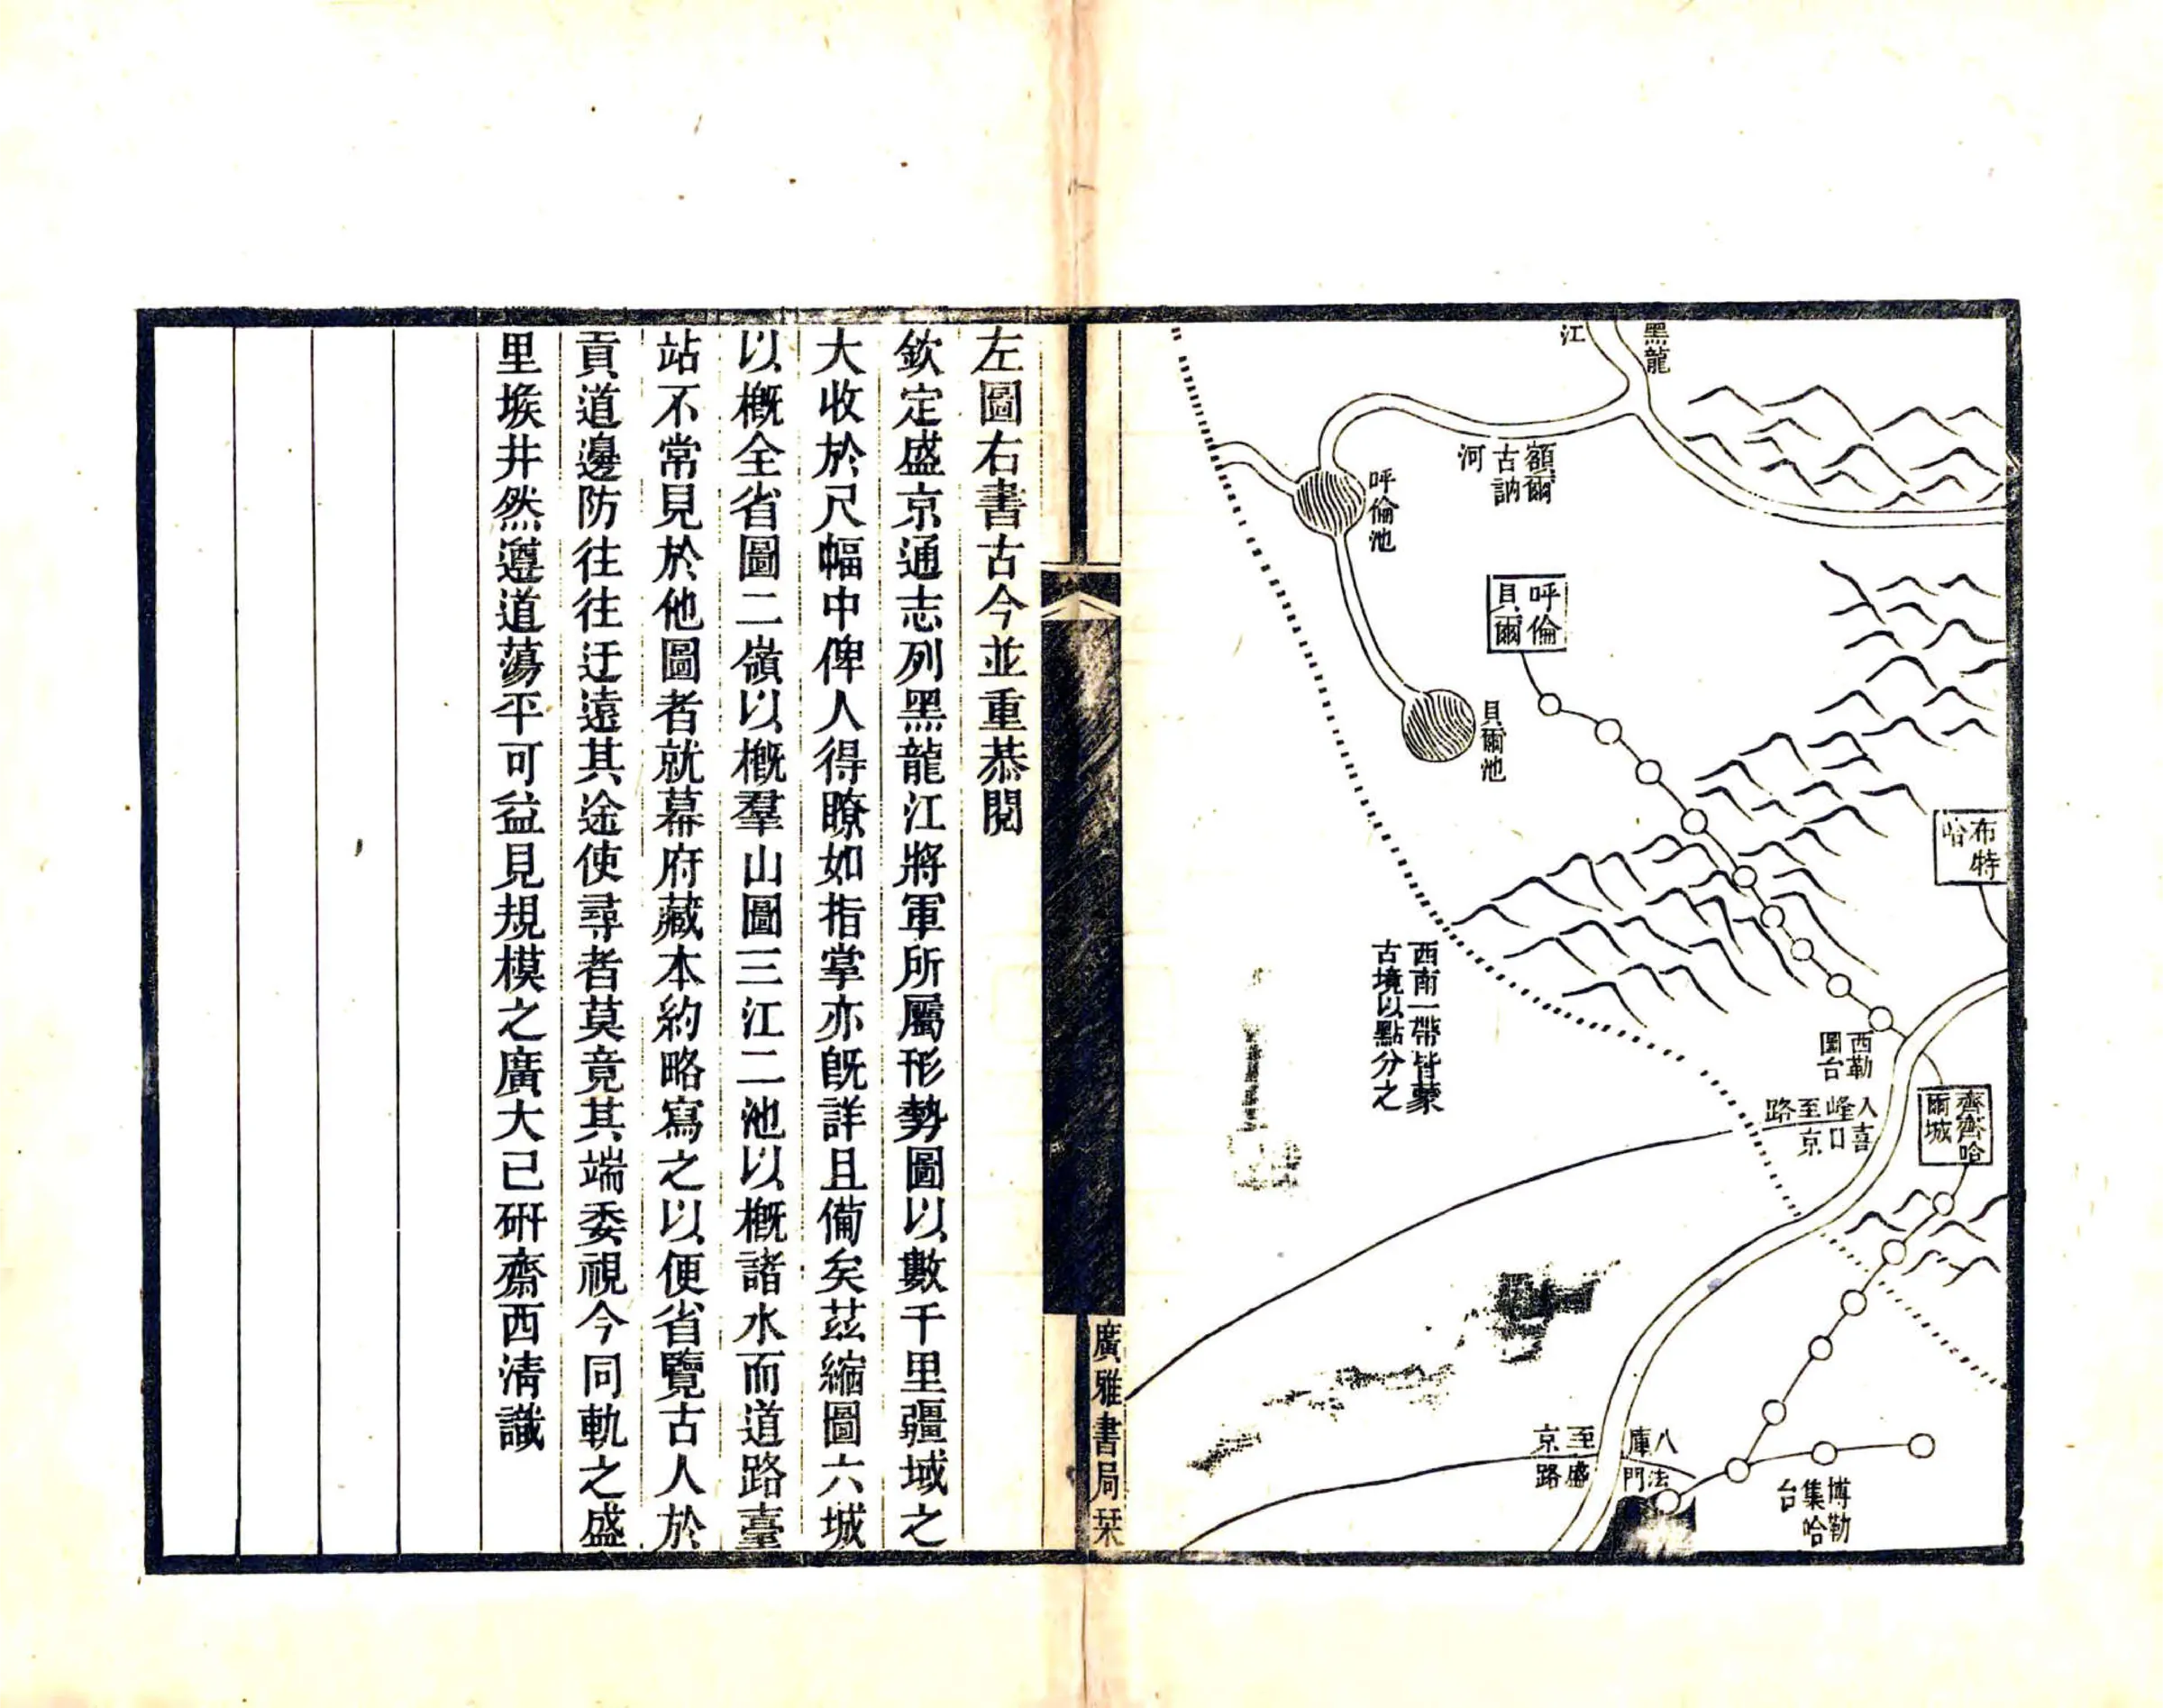 黑龍
江
額爾
古訥
河
呼倫池
呼倫
貝爾
貝爾池
布特
哈
西南一帶皆蒙
古境以點分之
西勒
圖台
齊齊哈
爾城
入喜
峰口
至京
路
八法
庫門
至盛
京路
博勒
集哈
台
廣雅書局栞
左圖右書古今並重恭閱
欽定盛京通志列黑龍江將軍所屬形勢圖以數千里疆域之
大收於尺幅中俾人得瞭如指掌亦旣詳且備矣茲縮圖六城
以概全省圖二嶺以概羣山圖三江二池以概諸水而道路臺
站不常見於他圖者就幕府藏本約略寫之以便省覽古人於
貢道邊防往往迂遠其途使尋者莫竟其端委視今同軌之盛
里堠井然遵道蕩平可益見規模之廣大已硏齋西清識